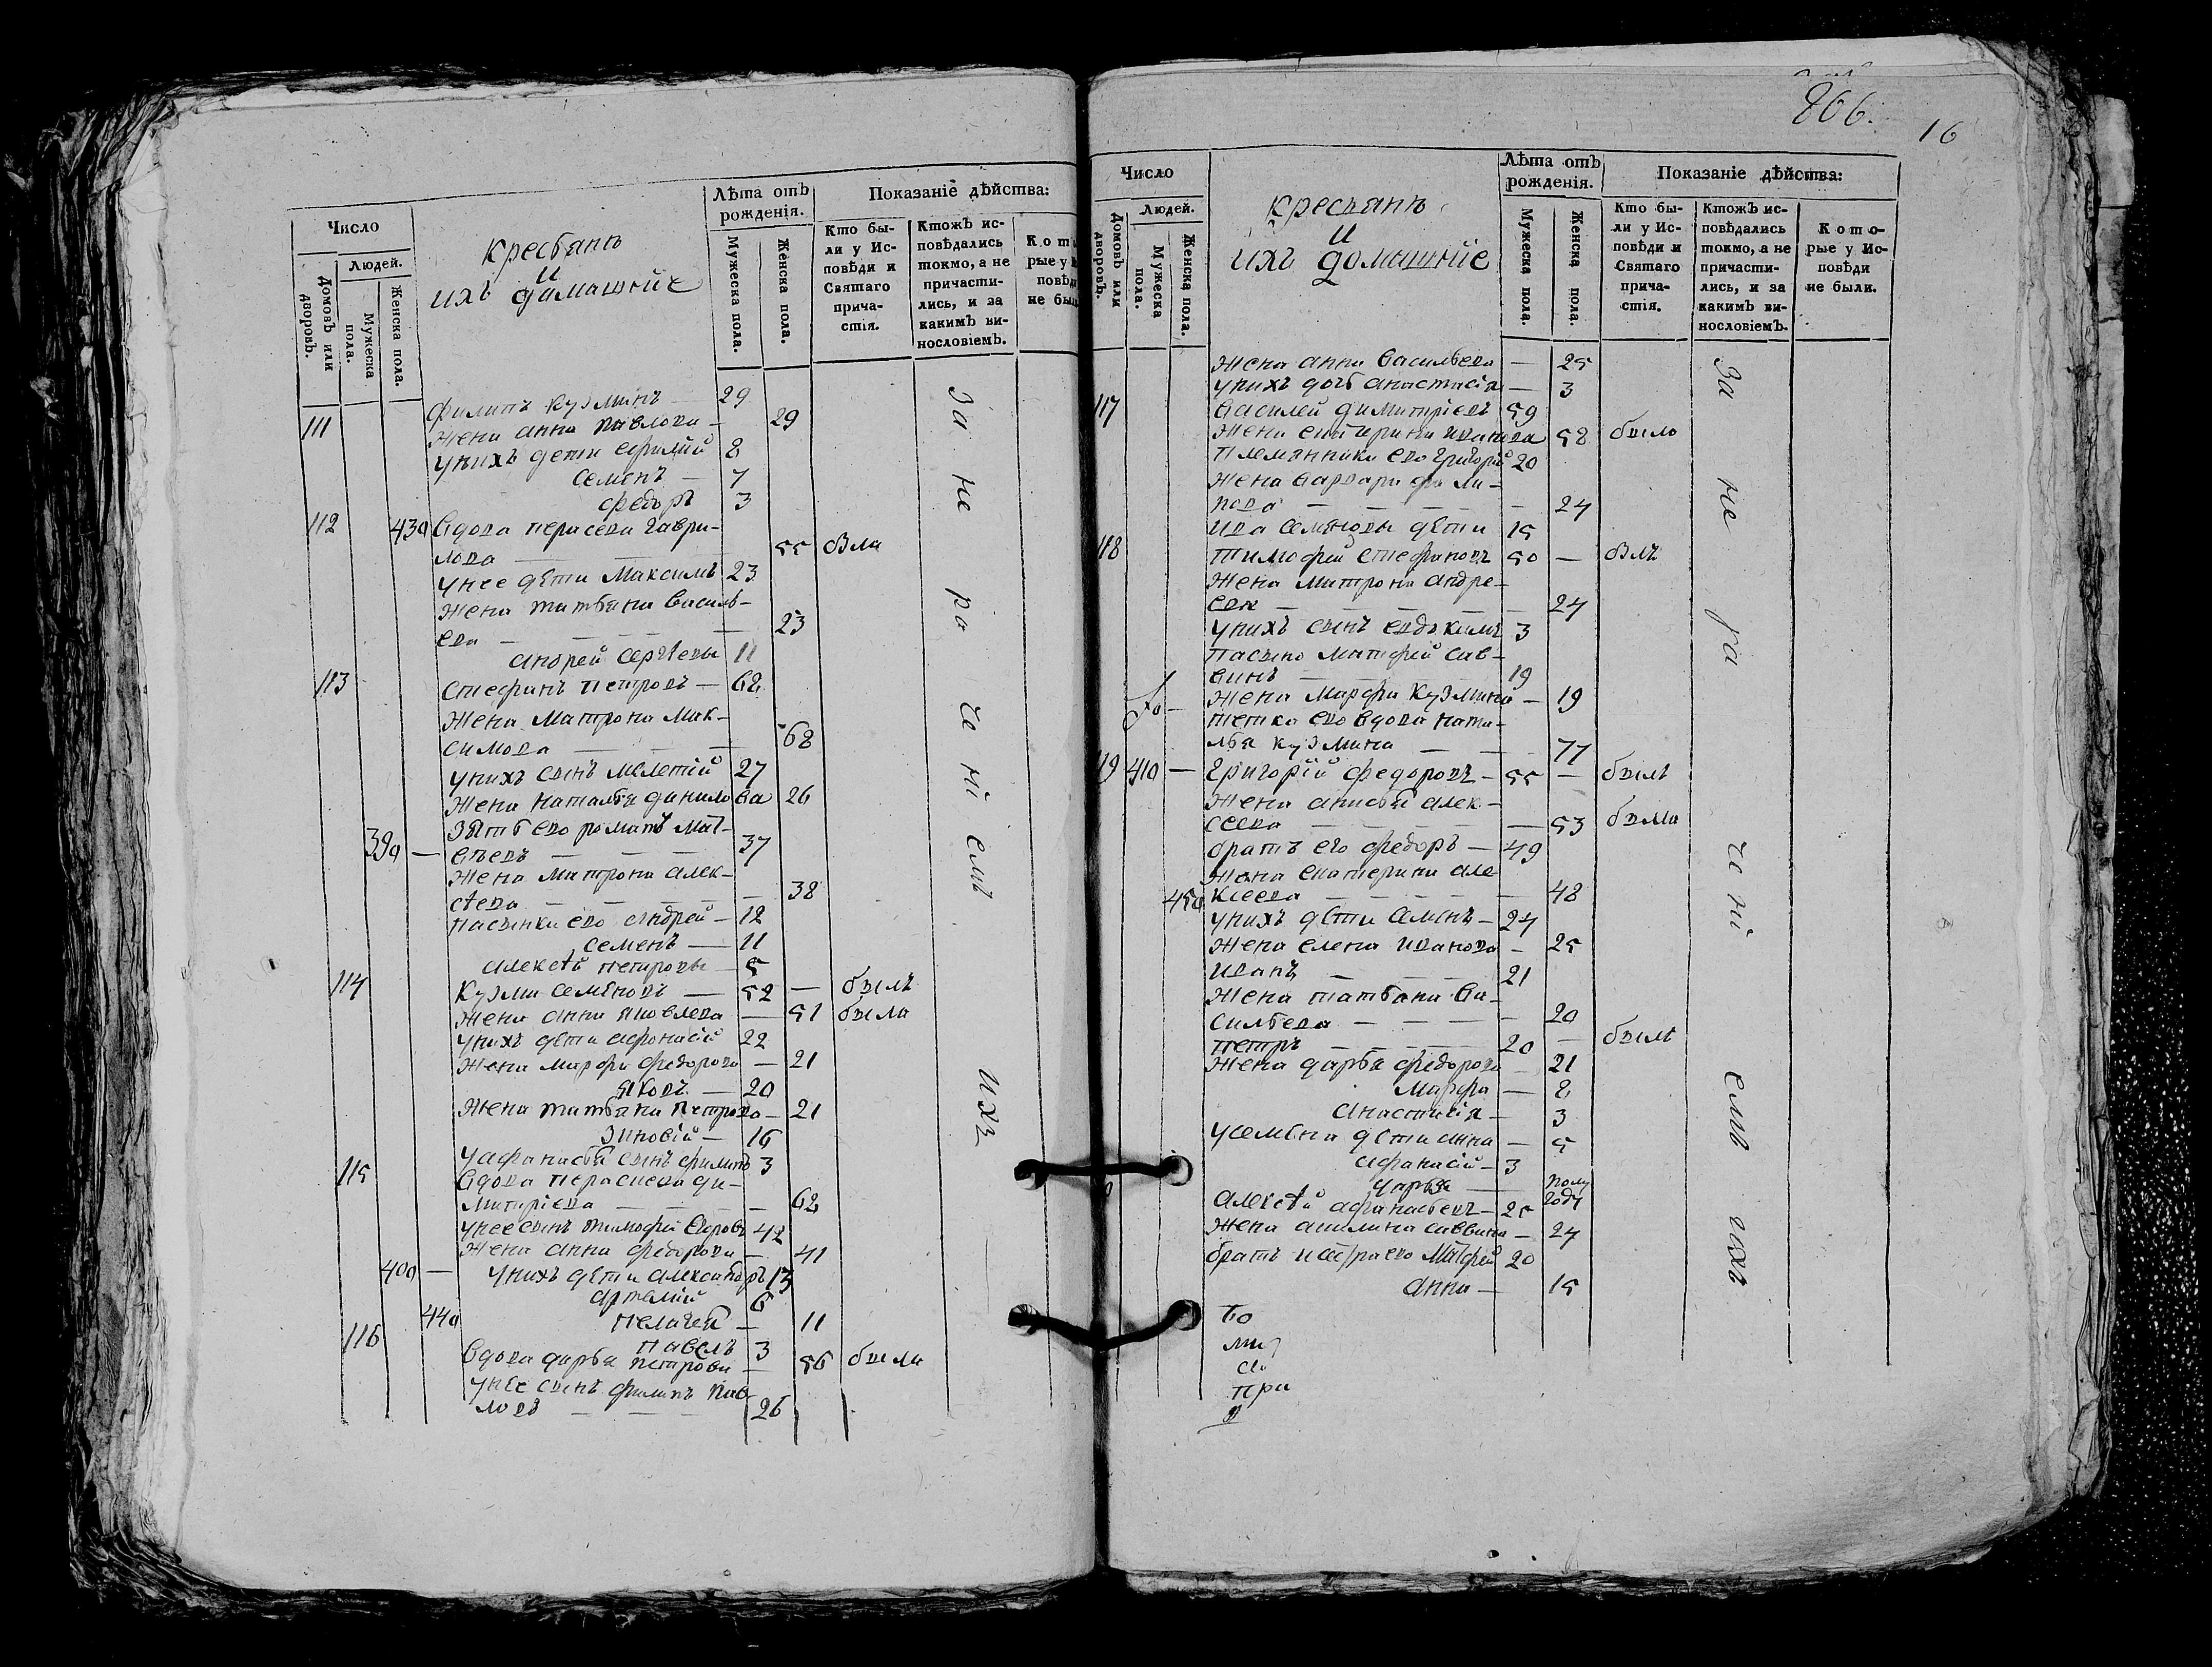 Число
Людей.
Домовъ или дворовъ.
Мужеска пола.
Женска пола.
крестьянъ
и
ихъ домашніе
Лѣта отъ рожденія.
Мужеска пола.
Женска пола.
Показаніе дѣйства:
Кто были у Исповѣди и Святаго причастія.
Ктожъ исповѣдались токмо, а не причастились, и за какимъ винословіемъ.
филипъ кузминъ 29
111 жена анна павлова — 29
унихъ дети 8
семенъ — 7
федоръ 3
112 430 вдова параскева гаври-
лова — 55 была
унее дѣти максимъ 23
жена татьяна василь-
ева — 23
андрей сергѣевы 11
113 стефанъ петровъ — 62
жена матрона мак-
симова — 68
унихъ сынъ мелетій 27
жена наталья данилова 26
зять его романъ мат-
390 — вѣевъ — 37
жена матрона алек-
сѣева — 38
пасынки его андрей — 12
семенъ — 11
алексѣй петровы — 5
114 кузма семеновъ — 52 — былъ
жена анна яковлева — 51 была
унихъ дѣти афонасій 22
жена марфа федорова — 21
яковъ — 20
жена татьяна петрова — 21
зиновій — 16
уафанасья сынъ филипъ 3
115 вдова параскева ди-
митріева — 62
унее сынъ тимофей 42
жена анна федорова — 41
400 — унихъ дѣти александръ 13
артемій 6
440 пелагея — 11
павелъ 3
116 вдова дарья петрова — 56 была
унее сынъ филипъ пав-
ловъ — 26
за не ра че ні емъ ихъ
206.
16
Число
Людей.
Домовъ или дворовъ.
Мужеска пола.
Женска пола.
крестьянъ
и
ихъ домашніе
Лѣта отъ рожденія.
Мужеска пола.
Женска пола.
Показаніе дѣйства:
Кто были у Исповѣди и Святаго причастія.
Ктожъ исповѣдались токмо, а не причастились, и за какимъ винословіемъ.
Которые у Исповѣди не были.
жена анна васильева — 25
унихъ дочь анастасія — 3
117 василей димитріевъ 59
жена екатерина иванова 58 было
племянники его григорій 20
жена варвара фи ли-
пова — 24
ива семеновы дѣти 15
118 тимофей стефановъ 50 — былъ
жена матрона андре-
ева — 24
унихъ сынъ евдокимъ 3
пасынокъ матфей сав-
винъ — 19
жена марфа кузмина — 19
тетка его вдова ната-
лья кузмина — 77
119 410 — григорій федоровъ — 55 — былъ
жена анисья алек-
сеева — 53 была
братъ его федоръ — 49
жена екатерина але
450 ксеева — 48
унихъ дѣти семенъ — 24
жена елена иванова — 25
иванъ — 21
жена татьяна ва-
сильева — 20
петръ — 20 — былъ
жена дарья федорова 21
марфа — 8
анастасія — 3
усемена дѣти анна — 5
афанасій — 3
дарья — полу году
алексѣй афанасьевъ — 25
жена акилина саввина — 24
братъ исестра его матфей 20
анна — 15
за не ра че ні емъ ихъ